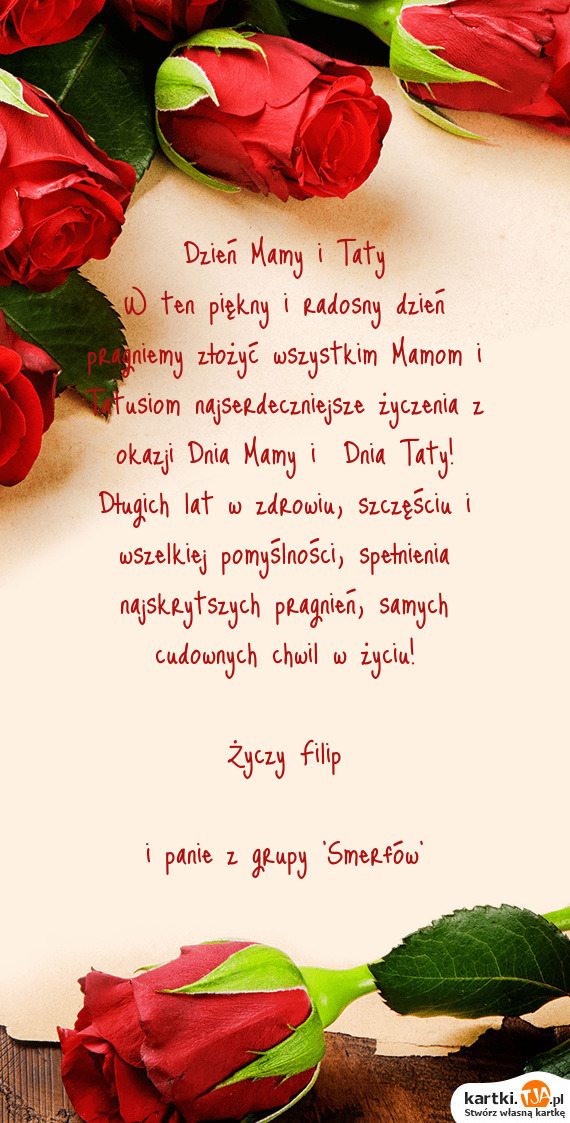 Dzień Mamy i Taty
W ten piękny i radosny dzień
pragniemy złożyć wszystkim Mamom i
Tatusiom najserdeczniejsze życzenia z
okazji Dnia Mamy i  Dnia Taty!
Długich lat w zdrowiu, szczęściu i
wszelkiej pomyślności, spełnienia
najskrytszych pragnień, samych
cudownych chwil w życiu!
Życzy filip
i panie z grupy 'Smerfów'
kartki.TJA.pl
Stwórz własną kartkę